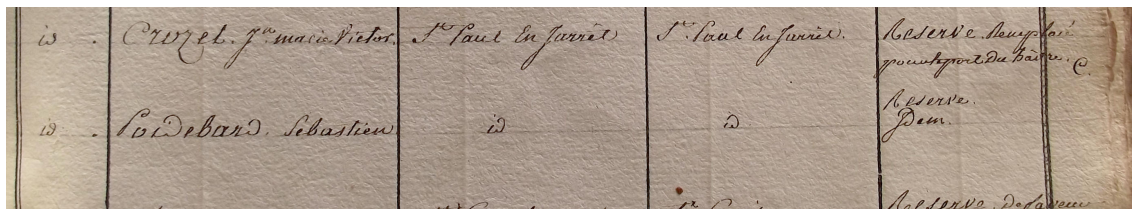 id . Crozet. Jn. marie Victor. St. Paul En Jarrêt St. Paul En Jarrêt. Reserve. Remplacé
pour le port du hâvre. C.
id . Poidebard. Sébastien id id Reserve.
Idem.
Reserve.